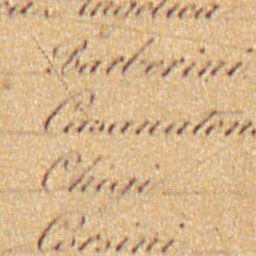 Angelica
Barberini
Casanaten
Chigi
Corsini